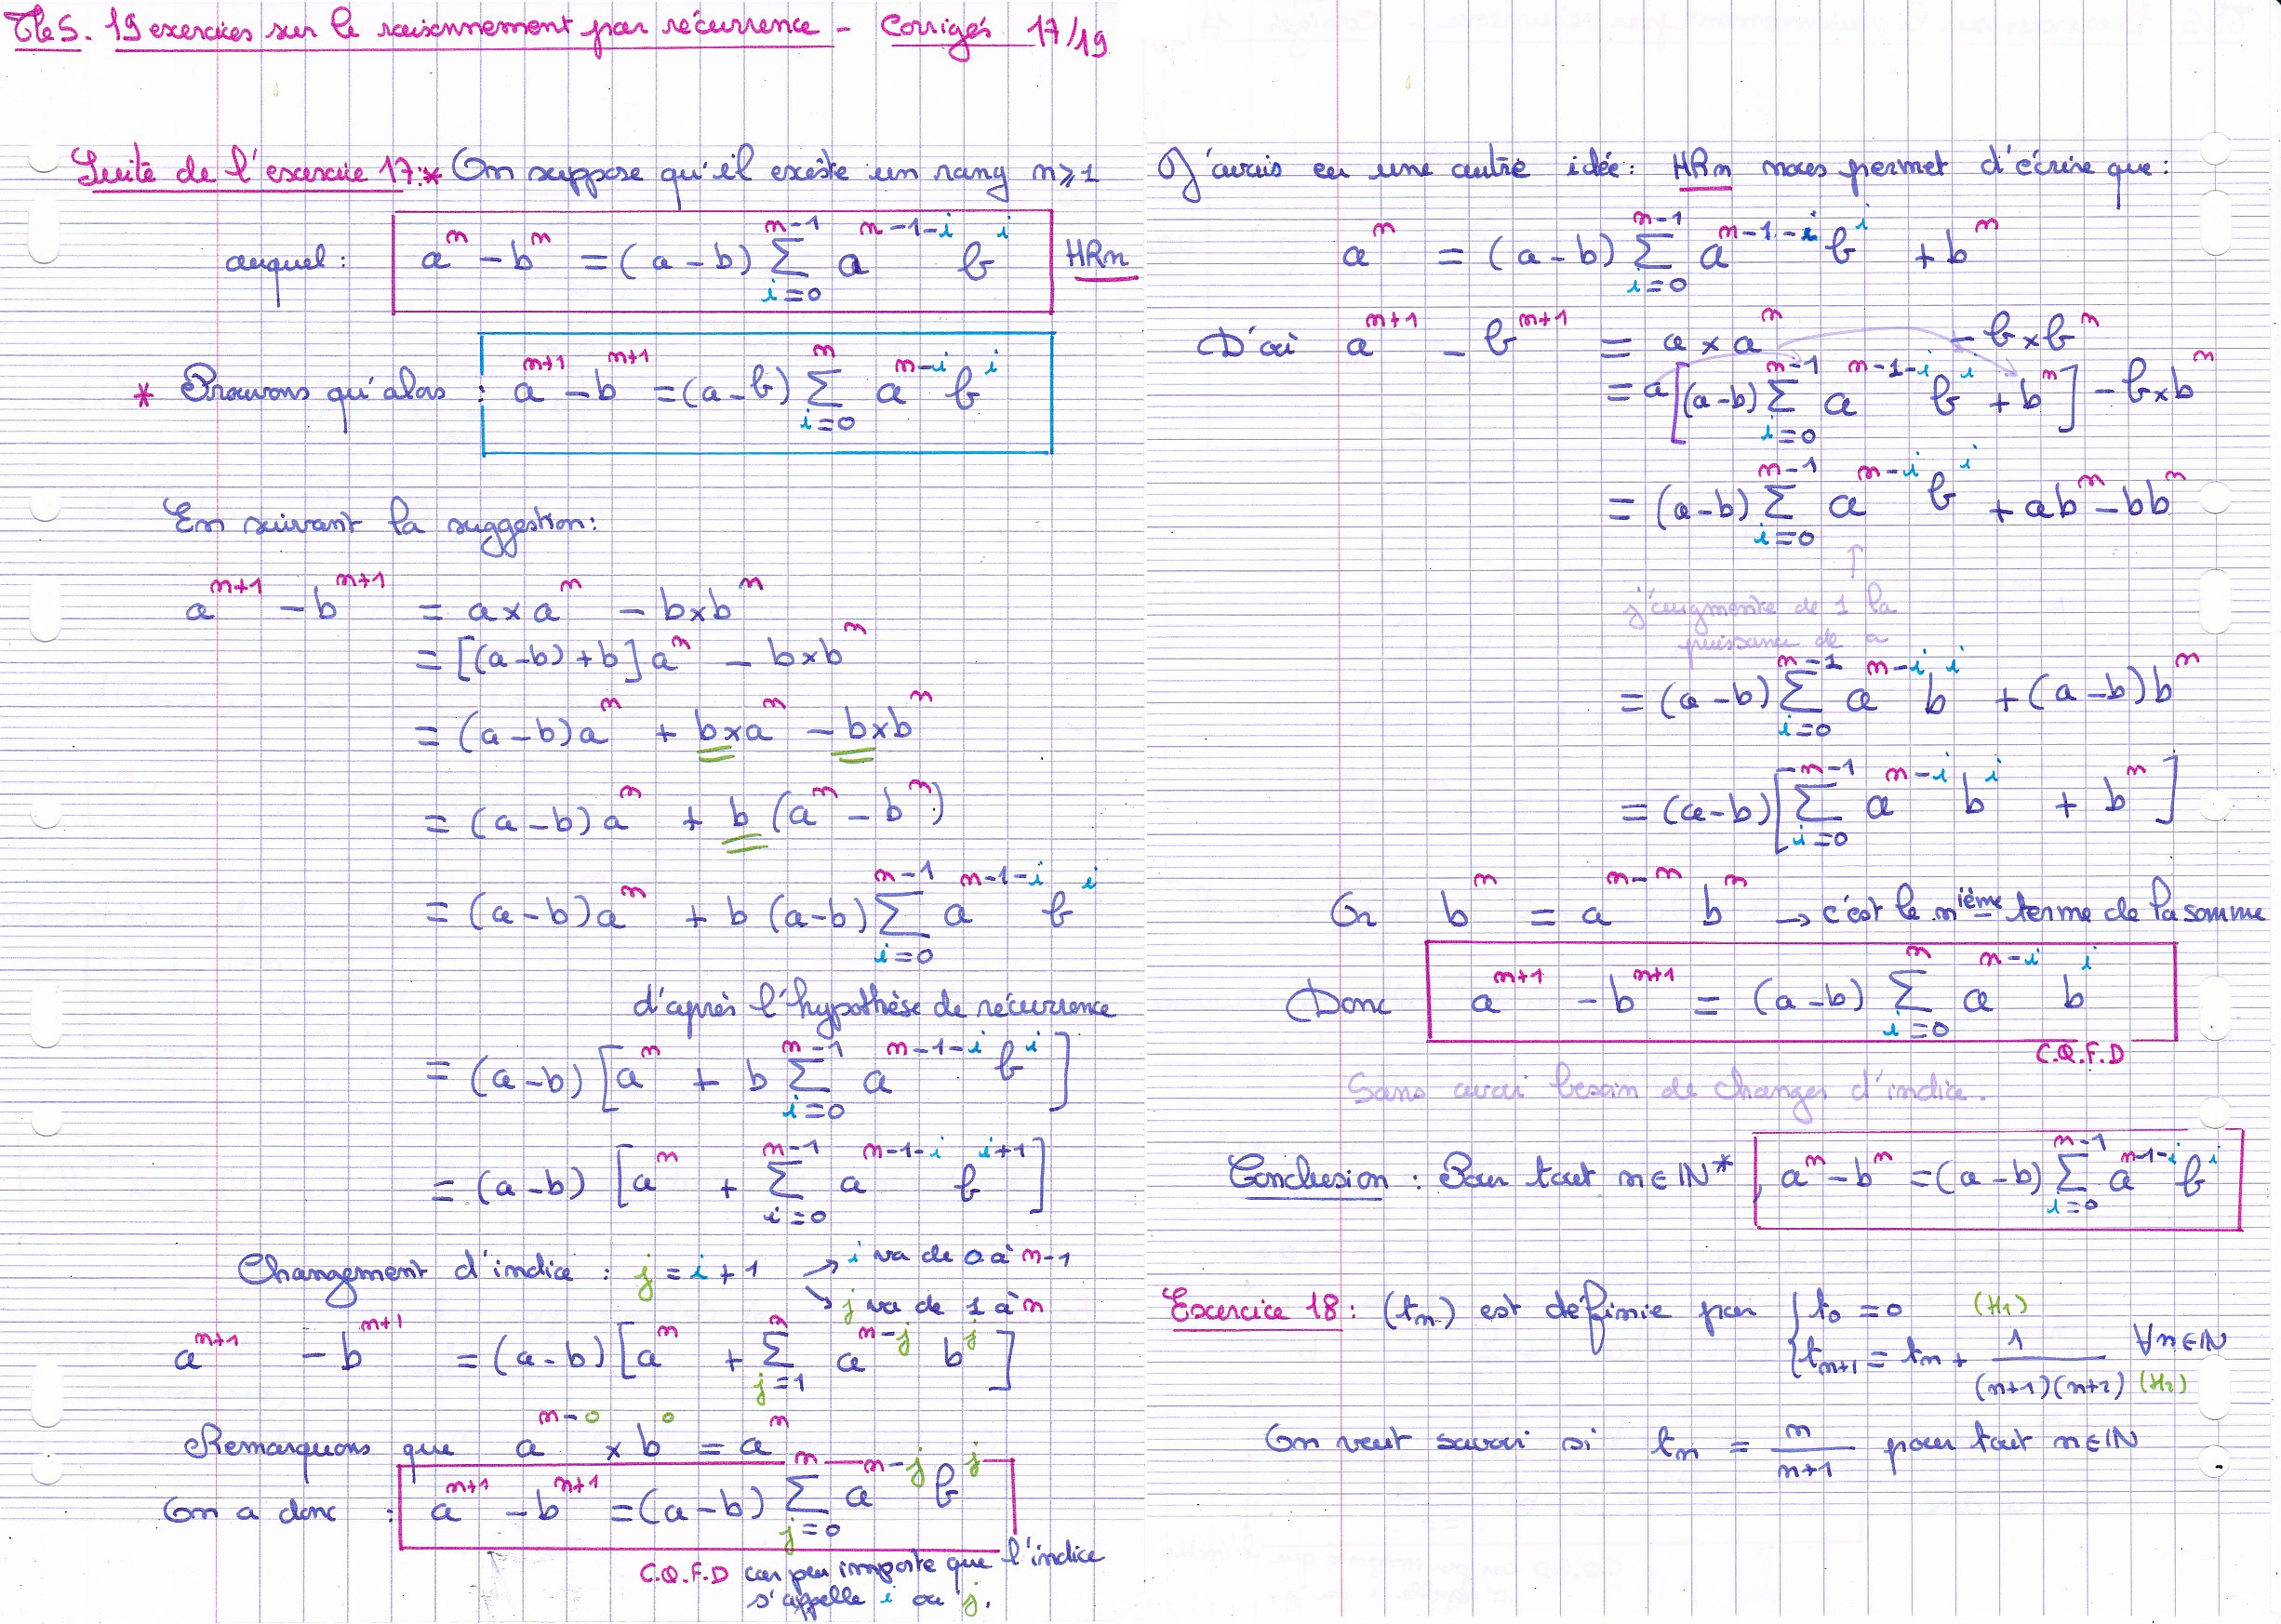 TleS. 19 exercices sur le raisonnement par récurrence - Corrigés 17/19
Suite de l'exercice 17:* On suppose qu'il existe un rang n ≥ 1
auquel : aⁿ - bⁿ = (a-b) ∑_{i=0}^{n-1} a^{n-1-i} b^i HRn
* Prouvons qu'alors : a^{n+1} - b^{n+1} = (a-b) ∑_{i=0}^{n} a^{n-i} b^i
En suivant la suggestion:
a^{n+1} - b^{n+1} = a × a^n - b×b^n
= [(a-b)+b] a^n - b×b^n
= (a-b)a^n + b×a^n - b×b^n
= (a-b)a^n + b (a^n - b^n)
= (a-b)a^n + b (a-b) ∑_{i=0}^{n-1} a^{n-1-i} b^i
d'après l'hypothèse de récurrence
= (a-b) [a^n + b ∑_{i=0}^{n-1} a^{n-1-i} b^i]
= (a-b) [a^n + ∑_{i=0}^{n-1} a^{n-1-i} b^{i+1}]
Changement d'indice : j = i + 1 → i va de 0 à n-1
↘ j va de 1 à n
a^{n+1} - b^{n+1} = (a-b) [a^n + ∑_{j=1}^{n} a^{n-j} b^j]
Remarquons que a^{n-0} × b^0 = a^n
On a donc : a^{n+1} - b^{n+1} = (a-b) ∑_{j=0}^{n} a^{n-j} b^j
C.Q.F.D car peu importe que l'indice
s'appelle i ou j.
J'aurais eu une autre idée: HRn nous permet d'écrire que :
a^n = (a-b) ∑_{i=0}^{n-1} a^{n-1-i} b^i + b^n
D'où a^{n+1} - b^{n+1} = a × a^n - b×b^n
= a [(a-b) ∑_{i=0}^{n-1} a^{n-1-i} b^i + b^n] - b×b^n
= (a-b) ∑_{i=0}^{n-1} a^{n-i} b^i + ab^n - bb^n
↑
j'augmente de 1 la
puissance de a
= (a-b) ∑_{i=0}^{n-1} a^{n-i} b^i + (a-b)b^n
= (a-b) [∑_{i=0}^{n-1} a^{n-i} b^i + b^n]
Or b^n = a^{n-n} b^n → c'est le nième terme de la somme
Donc a^{n+1} - b^{n+1} = (a-b) ∑_{i=0}^{n} a^{n-i} b^i
C.Q.F.D
Sans avoir besoin de changer d'indice.
Conclusion : Pour tout n ∈ IN*, a^n - b^n = (a-b) ∑_{i=0}^{n-1} a^{n-1-i} b^i
Exercice 18 : (tn) est définie par { t0 = 0 (H1)
{ t_{n+1} = tn + 1/((n+1)(n+2)) ∀n∈IN (H2)
On veut savoir si tn = n/(n+1) pour tout n∈IN .